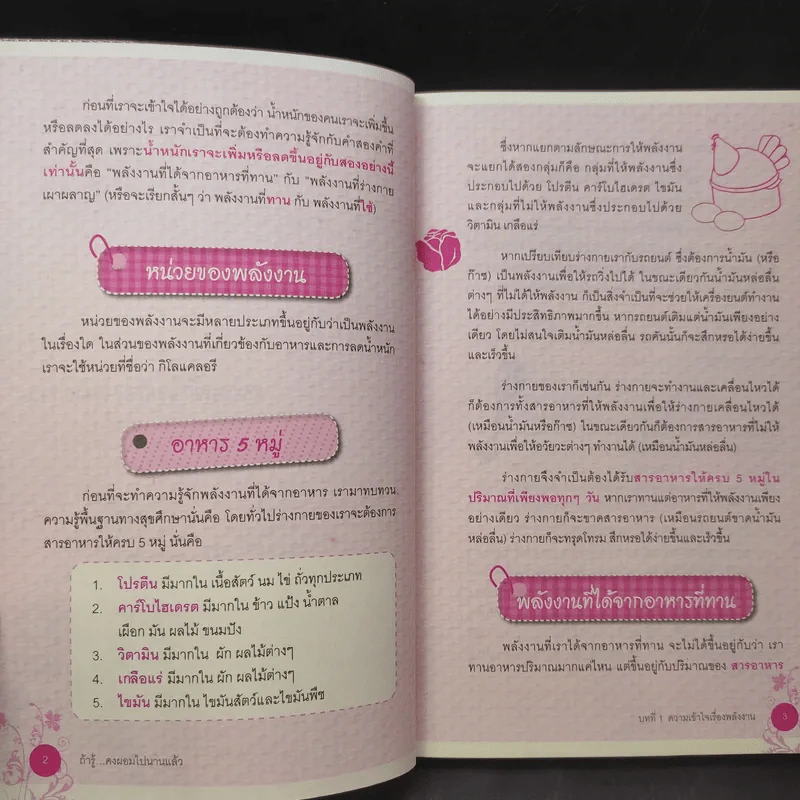 ก่อนที่เราจะเข้าใจได้อย่างถูกต้องว่า น้ำหนักของคนเราจะเพิ่มขึ้น
หรือลดลงได้อย่างไร เราจำเป็นที่จะต้องทำความรู้จักกับคำสองคำที่
สำคัญที่สุด เพราะน้ำหนักเราจะเพิ่มหรือลดขึ้นอยู่กับสองอย่างนี้
เท่านั้นคือ "พลังงานที่ได้จากอาหารที่ทาน" กับ "พลังงานที่ร่างกาย
เผาผลาญ" (หรือจะเรียกสั้นๆ ว่า พลังงานที่ทาน กับ พลังงานที่ใช้)
หน่วยของพลังงาน
หน่วยของพลังงานจะมีหลายประเภทขึ้นอยู่กับว่าเป็นพลังงาน
ในเรื่องใด ในส่วนของพลังงานที่เกี่ยวข้องกับอาหารและการลดน้ำหนัก
เราจะใช้หน่วยที่ชื่อว่า กิโลแคลอรี
อาหาร 5 หมู่
ก่อนที่จะทำความรู้จักพลังงานที่ได้จากอาหาร เรามาทบทวน
ความรู้พื้นฐานทางสุขศึกษานั่นคือ โดยทั่วไปร่างกายของเราจะต้องการ
สารอาหารให้ครบ 5 หมู่ นั่นคือ
1. โปรตีน มีมากใน เนื้อสัตว์ นม ไข่ ถั่วทุกประเภท
2. คาร์โบไฮเดรต มีมากใน ข้าว แป้ง น้ำตาล
เผือก มัน ผลไม้ ขนมปัง
3. วิตามิน มีมากใน ผัก ผลไม้ต่างๆ
4. เกลือแร่ มีมากใน ผัก ผลไม้ต่างๆ
5. ไขมัน มีมากใน ไขมันสัตว์และไขมันพืช
2 ถ้ารู้...คงผอมไปนานแล้ว
ซึ่งหากแยกตามลักษณะการให้พลังงาน
จะแยกได้สองกลุ่มก็คือ กลุ่มที่ให้พลังงานซึ่ง
ประกอบไปด้วย โปรตีน คาร์โบไฮเดรต ไขมัน
และกลุ่มที่ไม่ให้พลังงานซึ่งประกอบไปด้วย
วิตามิน เกลือแร่
หากเปรียบเทียบร่างกายเรากับรถยนต์ ซึ่งต้องการน้ำมัน (หรือ
ก๊าซ) เป็นพลังงานเพื่อให้รถวิ่งไปได้ ในขณะเดียวกันน้ำมันหล่อลื่น
ต่างๆ ที่ไม่ได้ให้พลังงาน ก็เป็นสิ่งจำเป็นที่จะช่วยให้เครื่องยนต์ทำงาน
ได้อย่างมีประสิทธิภาพมากขึ้น หากรถยนต์เติมแต่น้ำมันเพียงอย่าง
เดียว โดยไม่สนใจเติมน้ำมันหล่อลื่น รถคันนั้นก็จะสึกหรอได้ง่ายขึ้น
และเร็วขึ้น
ร่างกายของเราก็เช่นกัน ร่างกายจะทำงานและเคลื่อนไหวได้
ก็ต้องการทั้งสารอาหารที่ให้พลังงานเพื่อให้ร่างกายเคลื่อนไหวได้
(เหมือนน้ำมันหรือก๊าซ) ในขณะเดียวกันก็ต้องการสารอาหารที่ไม่ให้
พลังงานเพื่อให้อวัยวะต่างๆ ทำงานได้ (เหมือนน้ำมันหล่อลื่น)
ร่างกายจึงจำเป็นต้องได้รับสารอาหารให้ครบ 5 หมู่ใน
ปริมาณที่เพียงพอทุกๆ วัน หากเราทานแต่อาหารที่ให้พลังงานเพียง
อย่างเดียว ร่างกายก็จะขาดสารอาหาร (เหมือนรถยนต์ขาดน้ำมัน
หล่อลื่น) ร่างกายก็จะทรุดโทรม สึกหรอได้ง่ายขึ้นและเร็วขึ้น
พลังงานที่ได้จากอาหารที่ทาน
พลังงานที่เราได้จากอาหารที่ทาน จะไม่ได้ขึ้นอยู่กับว่า เรา
ทานอาหารปริมาณมากแค่ไหน แต่ขึ้นอยู่กับปริมาณของ สารอาหาร
บทที่ 1 ความเข้าใจเรื่องพลังงาน 3